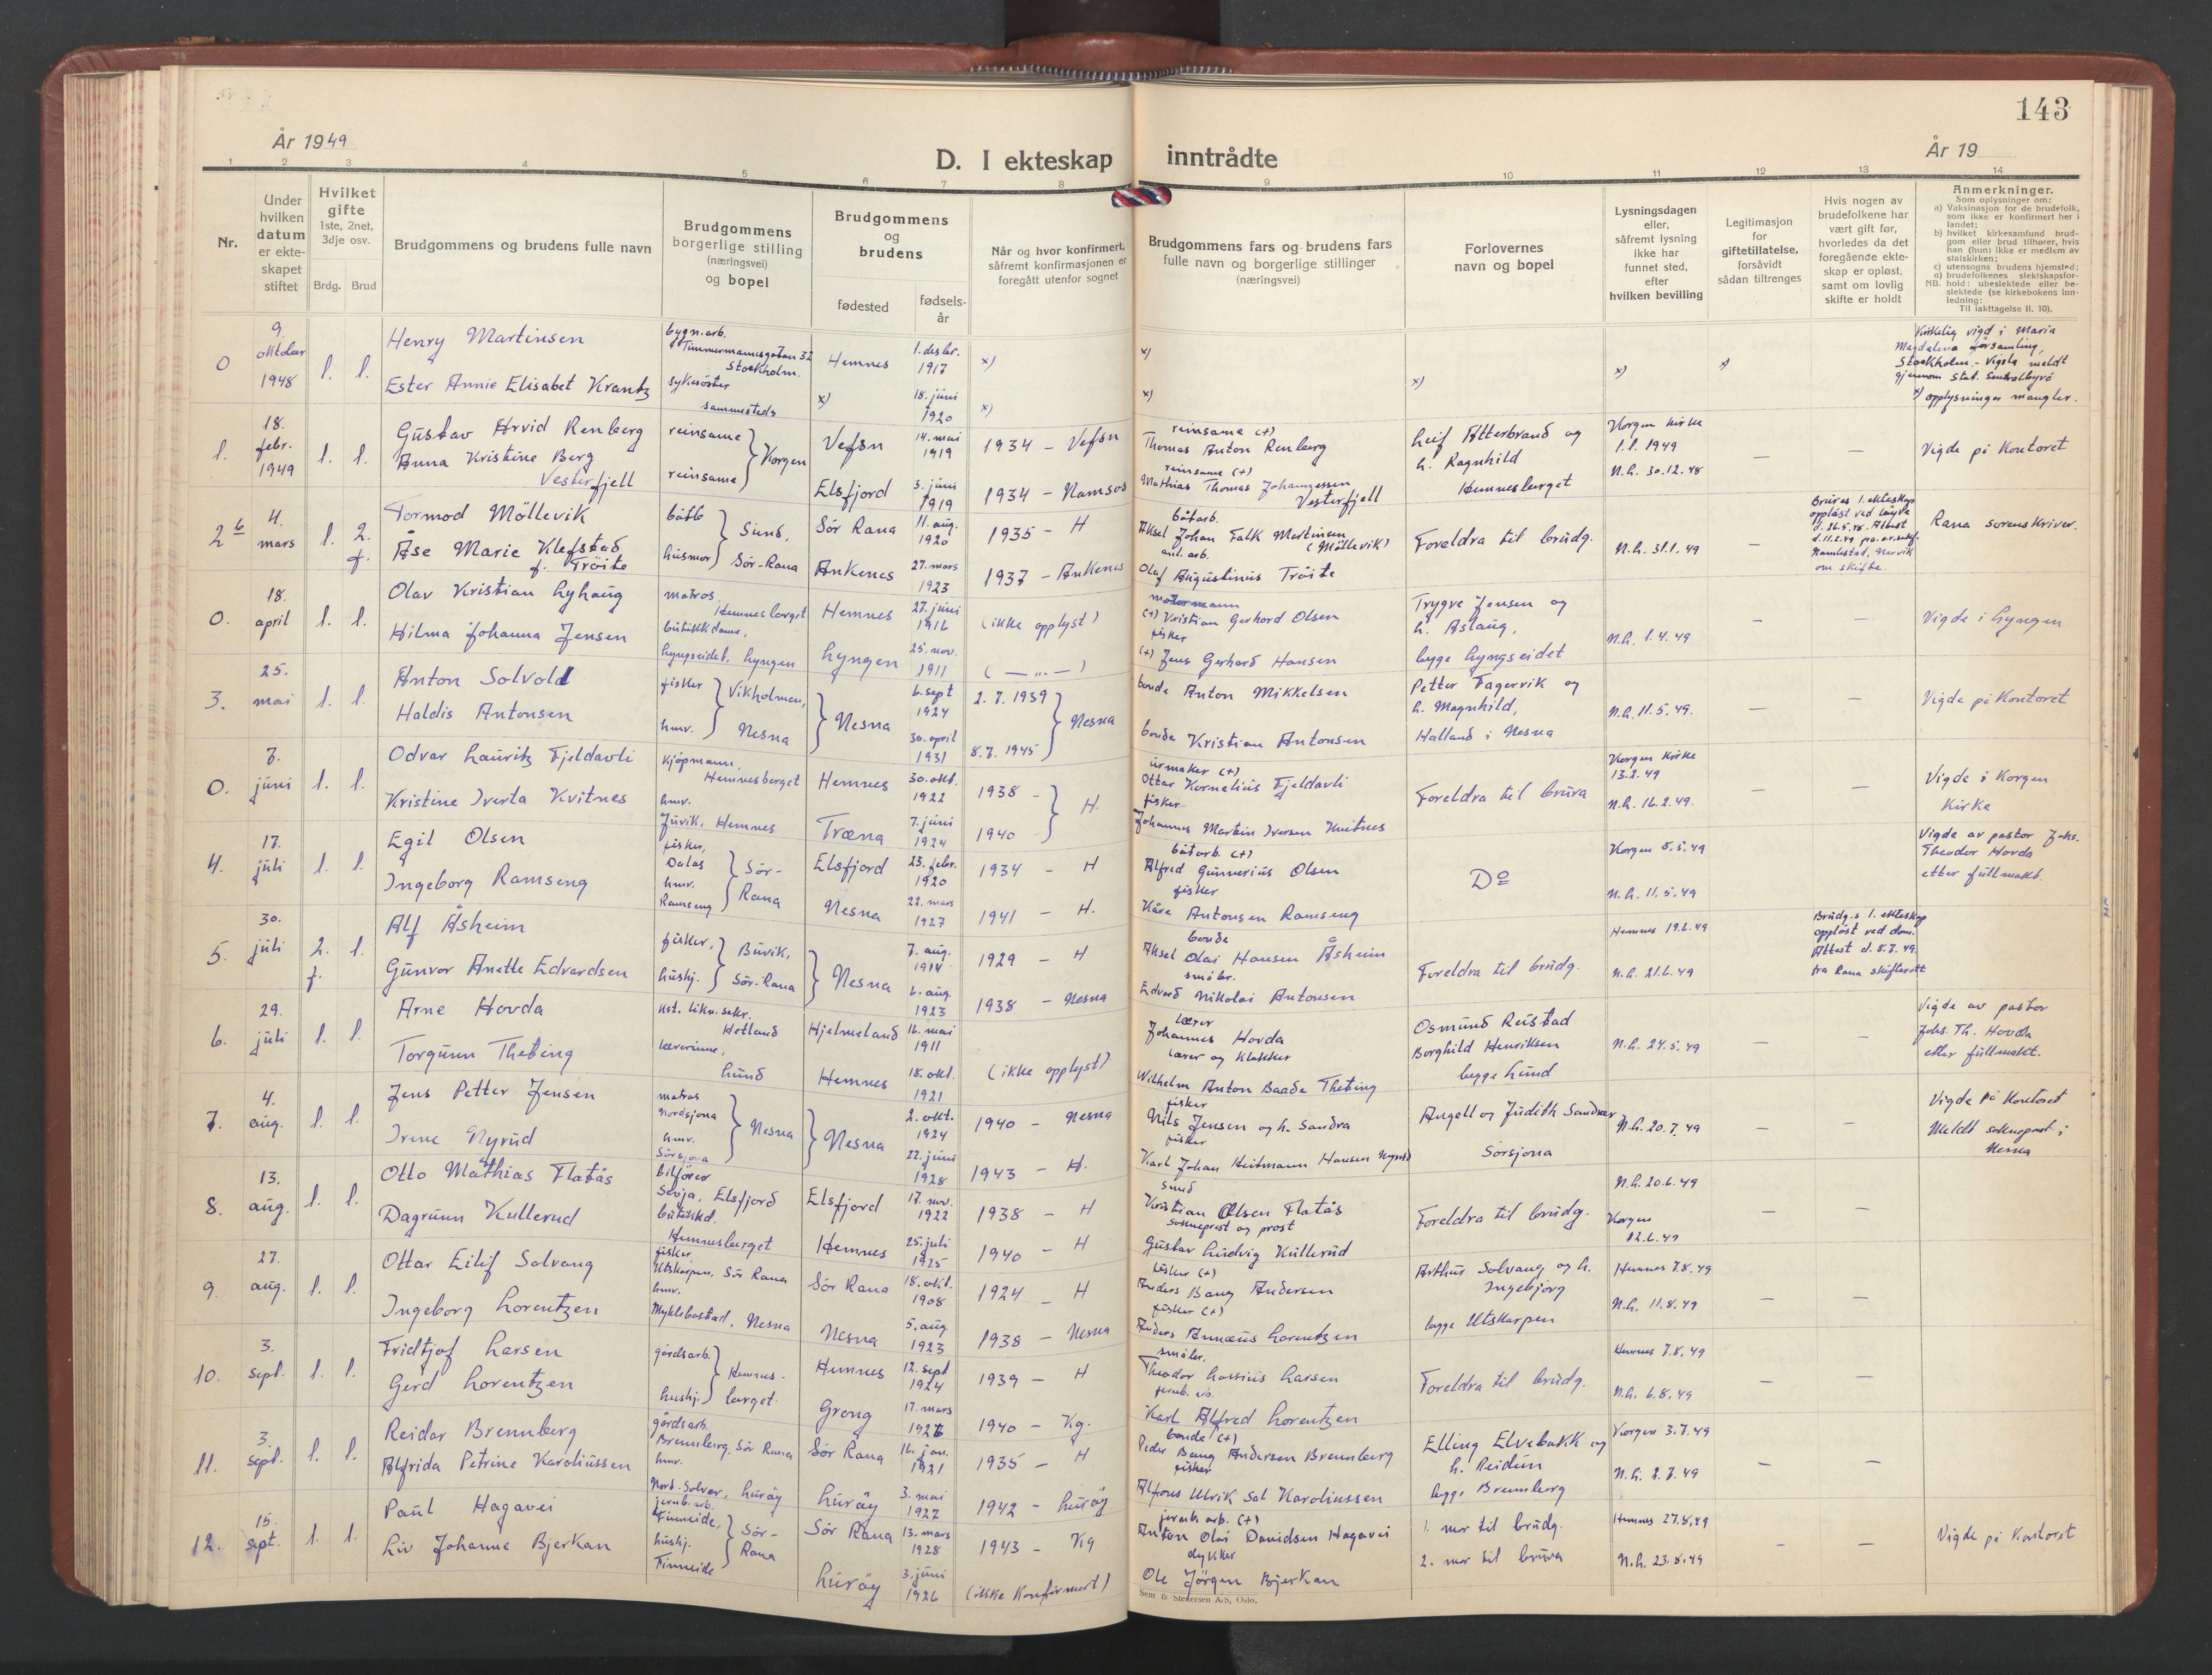 143
År 1949
D. I ekteskap inntrådte
År 19
1 2 3 4 5 6 7 8 9 10 11 12 13 14
Nr.
Under hvilken datum er ekteskapet stiftet
Hvilket gifte 1ste, 2net, 3dje osv.
Brdg. Brud
Brudgommens og brudens fulle navn
Brudgommens borgerlige stilling (næringsvei) og bopel
Brudgommens og brudens
fødested
fødselsår
Når og hvor konfirmert, såfremt konfirmasjonen er foregått utenfor sognet
Brudgommens fars og brudens fars fulle navn og borgerlige stillinger (næringsvei)
Forlovernes navn og bopel
Lysningsdagen eller, såfremt lysning ikke har funnet sted, efter hvilken bevilling
Legitimasjon for giftetillatelse, forsåvidt sådan tiltrenges
Hvis nogen av brudefolkene har vært gift før, hvorledes da det foregående ekteskap er opløst, samt om lovlig skifte er holdt
Anmerkninger.
Som oplysninger om:
a) Vaksinasjon for de brudefolk, som ikke er konfirmert her i landet;
b) hvilket kirkesamfund brudgom eller brud tilhører, hvis han (hun) ikke er medlem av statskirken;
c) utensogns brudens hjemsted;
d) brudefolkenes slektskapsforhold: ubeslektede eller beslektede (se kirkebokens innledning:
NB.
Til iakttagelse II. 10).
0 9. oktober 1948 1. 1.
Henry Martinsen
bygn.arb. Timmermansgatan 32 Stockholm.
Hemnes 1. desbr. 1917 x) x)
Ester Annie Elisabet Krantz
sykesöster sammesteds
x) 18. juni 1920 x) x) x) x) x)
Kirkelig vigd i Maria Magdalena församling, Stockholm - Vigsla meldt gjennom Stat. Sentralbyrå
x) opplysninger mangler.
1. 18. febr. 1949 1. 1.
Gustav Arvid Renberg
reinsame Korgen
Vefsn 14. mai 1919 1934 - Vefsn
reinsame (+) Thomas Anton Renberg
Anna Kristine Berg Vesterfjell
reinsame
Elsfjord 3. juni 1919 1934 - Namsos
reinsame (+) Mathias Thomas Johannessen Vesterfjell
Leif Atterbrand og h. Ragnhild Hemnesberget
Korgen kirke 1.1.1949
N.h. 30.12.48
— —
Vigde på Kontoret
2 b 4. mars 1. 2. f.
Tormod Möllevik
båtb Sund, Sör-Rana
Sör Rana 11. aug. 1920 1935 - H
båtarb. Aksel Johan Falk Martinsen (Möllevik)
Åse Marie Klefstad f. Tröite
husmor
Ankenes 27. mars 1923 1937 - Ankenes
anl. arb. Olaf Augustinus Tröite
Foreldra til brudg.
N.h. 31.1.49
Bruras 1. ekteskap oppløst ved løyve d. 26.5.48. Attest d. 11.2.49 om skifte.
Rana sorenskriver.
0. 18. april 1. 1.
Olav Kristian Lyhaug
matros Hemnesberget
Hemnes 27. juni 1916 (ikke opplyst)
motormann (+) Kristian Gerhard Olsen
Hilma Johanna Jensen
butikkdame, Lyngseidet, Lyngen
Lyngen 25. nov. 1911 ( — „ — )
fisker (+) Jens Gerhard Hansen
Trygve Jensen og h. Aslaug, begge Lyngseidet
N.h. 1.4.49
— —
Vigde i Lyngen
3. 25. mai 1. 1.
Anton Solvold
fisker Vikholmen, Nesna
Nesna 6. sept 1924 2.7.1939 Nesna
bonde Anton Mikkelsen
Haldis Antonsen
hmv.
30. april 1931 8.7.1945
bonde Kristian Antonsen
Petter Fagervik og h. Magnhild, Halland i Nesna
N.h. 11.5.49.
— —
Vigde på Kontoret
0. 7. juni 1. 1.
Odvar Lauritz Fjeldavli
kjøpmann, Hemnesberget
Hemnes 30. okt. 1922 1938 - H.
urmaker (+) Ottar Kornelius Fjeldavli
Kristine Iverta Kvitnes
hmv. Juvik, Hemnes
Træna 7. juni 1924 1940
fisker Johannes Martin Iversen Kvitnes
Foreldra til brura
Korgen kirke 13.2.49
N.h. 16.2.49.
— —
Vigde i Korgen Kirke
4. 17. juli 1. 1.
Egil Olsen
fisker, Dalas Sör-Rana
Elsfjord 23. febr. 1920 1934 - H
båtarb. (+) Alfred Gunnerius Olsen
Ingeborg Ramseng
hmv. Ramseng
Nesna 22. mars 1927 1941 - H.
fisker Kåre Antonsen Ramseng
Do
Korgen 8.5.49
N.h. 11.5.49
Vigde av pastor Johs. Theodor Hovda etter fullmakt.
5. 30. juli 2. f. 1.
Alf Åsheim
fisker, Buvik, Sör-Rana
Nesna 7. aug. 1914 1929 - H
bonde Aksel Olai Hansen Åsheim
Gunvor Anette Edvardsen
hushj.
6. aug. 1923 1938 - Nesna
småbr. Edvard Nikolai Antonsen
Foreldra til brudg.
Hemnes 19.6.49
N.h. 21.6.49
Brudg.s 1. ekteskap oppløst ved dom. Attest d. 8.7.49. fra Rana skifterett
6. 29. juli 1. 1.
Arne Hovda
ast. likn.sekr. Hetland
Hjelmeland 16. mai 1911 (ikke opplyst)
lærer Johannes Hovda
Torgunn Thebing
lærerinne, Lund
Hemnes 18. okt. 1921
lærer og klokker Wilhelm Anton Baade Thebing
Osmund Reistad Borghild Henriksen begge Lund
N.h. 24.5.49
— —
Vigde av pastor Johs. Th. Hovda etter fullmakt.
7. 4. aug. 1. 1.
Jens Petter Jensen
matros Nordsjona Nesna
Nesna 2. okt. 1924 1940 - Nesna
fisker Nils Jensen og h. Sandra
Irene Nyrud
hmv. Sörsjona
22. juni 1928 1943 - H.
fisker Karl Johan Heitmann Hansen Nyrud
Angell og Judith Sandnes Sörsjona
N.h. 20.7.49
Vigde på Kontoret Meldt sokneprest i Nesna
8. 13. aug. 1. 1.
Otto Mathias Flatås
bilförer Sevja, Elsfjord
Elsfjord 17. nov. 1922 1938 - H
smed Kristian Olsen Flatås
Dagrunn Kullerud
butikkd. Hemnesberget
Hemnes 25. juli 1925 1940 - H
sokneprest og prost Gustav Ludvig Kullerud
Foreldra til brudg.
N.h. 20.6.49
Korgen 12.6.49
— —
9. 27. aug. 1. 1.
Ottar Eilif Solvang
fisker Utskarpen, Sör Rana
Sör Rana 18. okt. 1908 1924 - H
fisker (+) Anders Bang Andersen
Ingeborg Lorentzen
hmv. Myklebostad, Nesna
Nesna 5. aug. 1923 1938 - Nesna
fisker (+) Anders Annæus Lorentzen
Arthur Solvang og h. Ingebjørg begge Utskarpen
Hemnes 7.8.49
N.h. 11.8.49
— —
10. 3. sept. 1. 1.
Fridtjof Larsen
gårdsarb. Hemnesberget.
Hemnes 12. sept 1924 1939 - H
småbr. Theodor Lorsius Larsen
Gerd Lorentzen
hushj.
Grong 17. mars 1926 1940 - Kg.
jernb. arb. Karl Alfred Lorentzen
Foreldra til brudg.
Hemnes 7.8.49
N.h. 6.8.49
— —
11. 3. sept. 1. 1.
Reidar Brennberg
gårdsarb. Brennberg, Sör Rana
Sör Rana 16. jan. 1921 1935 - H
bonde (+) Peder Bang Andersen Brennberg
Alfrida Petrine Karoliussen
hmv. Nord-Solvær, Luröy
Luröy 3. mai 1927 1942 - Luröy
fisker Alfons Ulrik Sal Karoliussen
Elling Elvebakk og h. Reidun begge Brennberg
Korgen 3.7.49
N.h. 2.7.49
— —
12. 15. sept. 1. 1.
Paul Hagavei
jernb. arb. Finneide, Sör-Rana
Sör Rana 13. mars 1928 1943 - Kg
jernb arb. (+) Anton Olai Davidsen Hagavei
Liv Johanne Bjerkan
hushj. Finneide
Luröy 3. juni 1926 (ikke konfirmert)
dykker Ole Jörgen Bjerkan
1. mor til brudg.
2. mor til brura
Hemnes 27.8.49
N.h. 23.8.49
— —
Vigde på Kontoret
Sem & Stenersen A/S, Oslo.